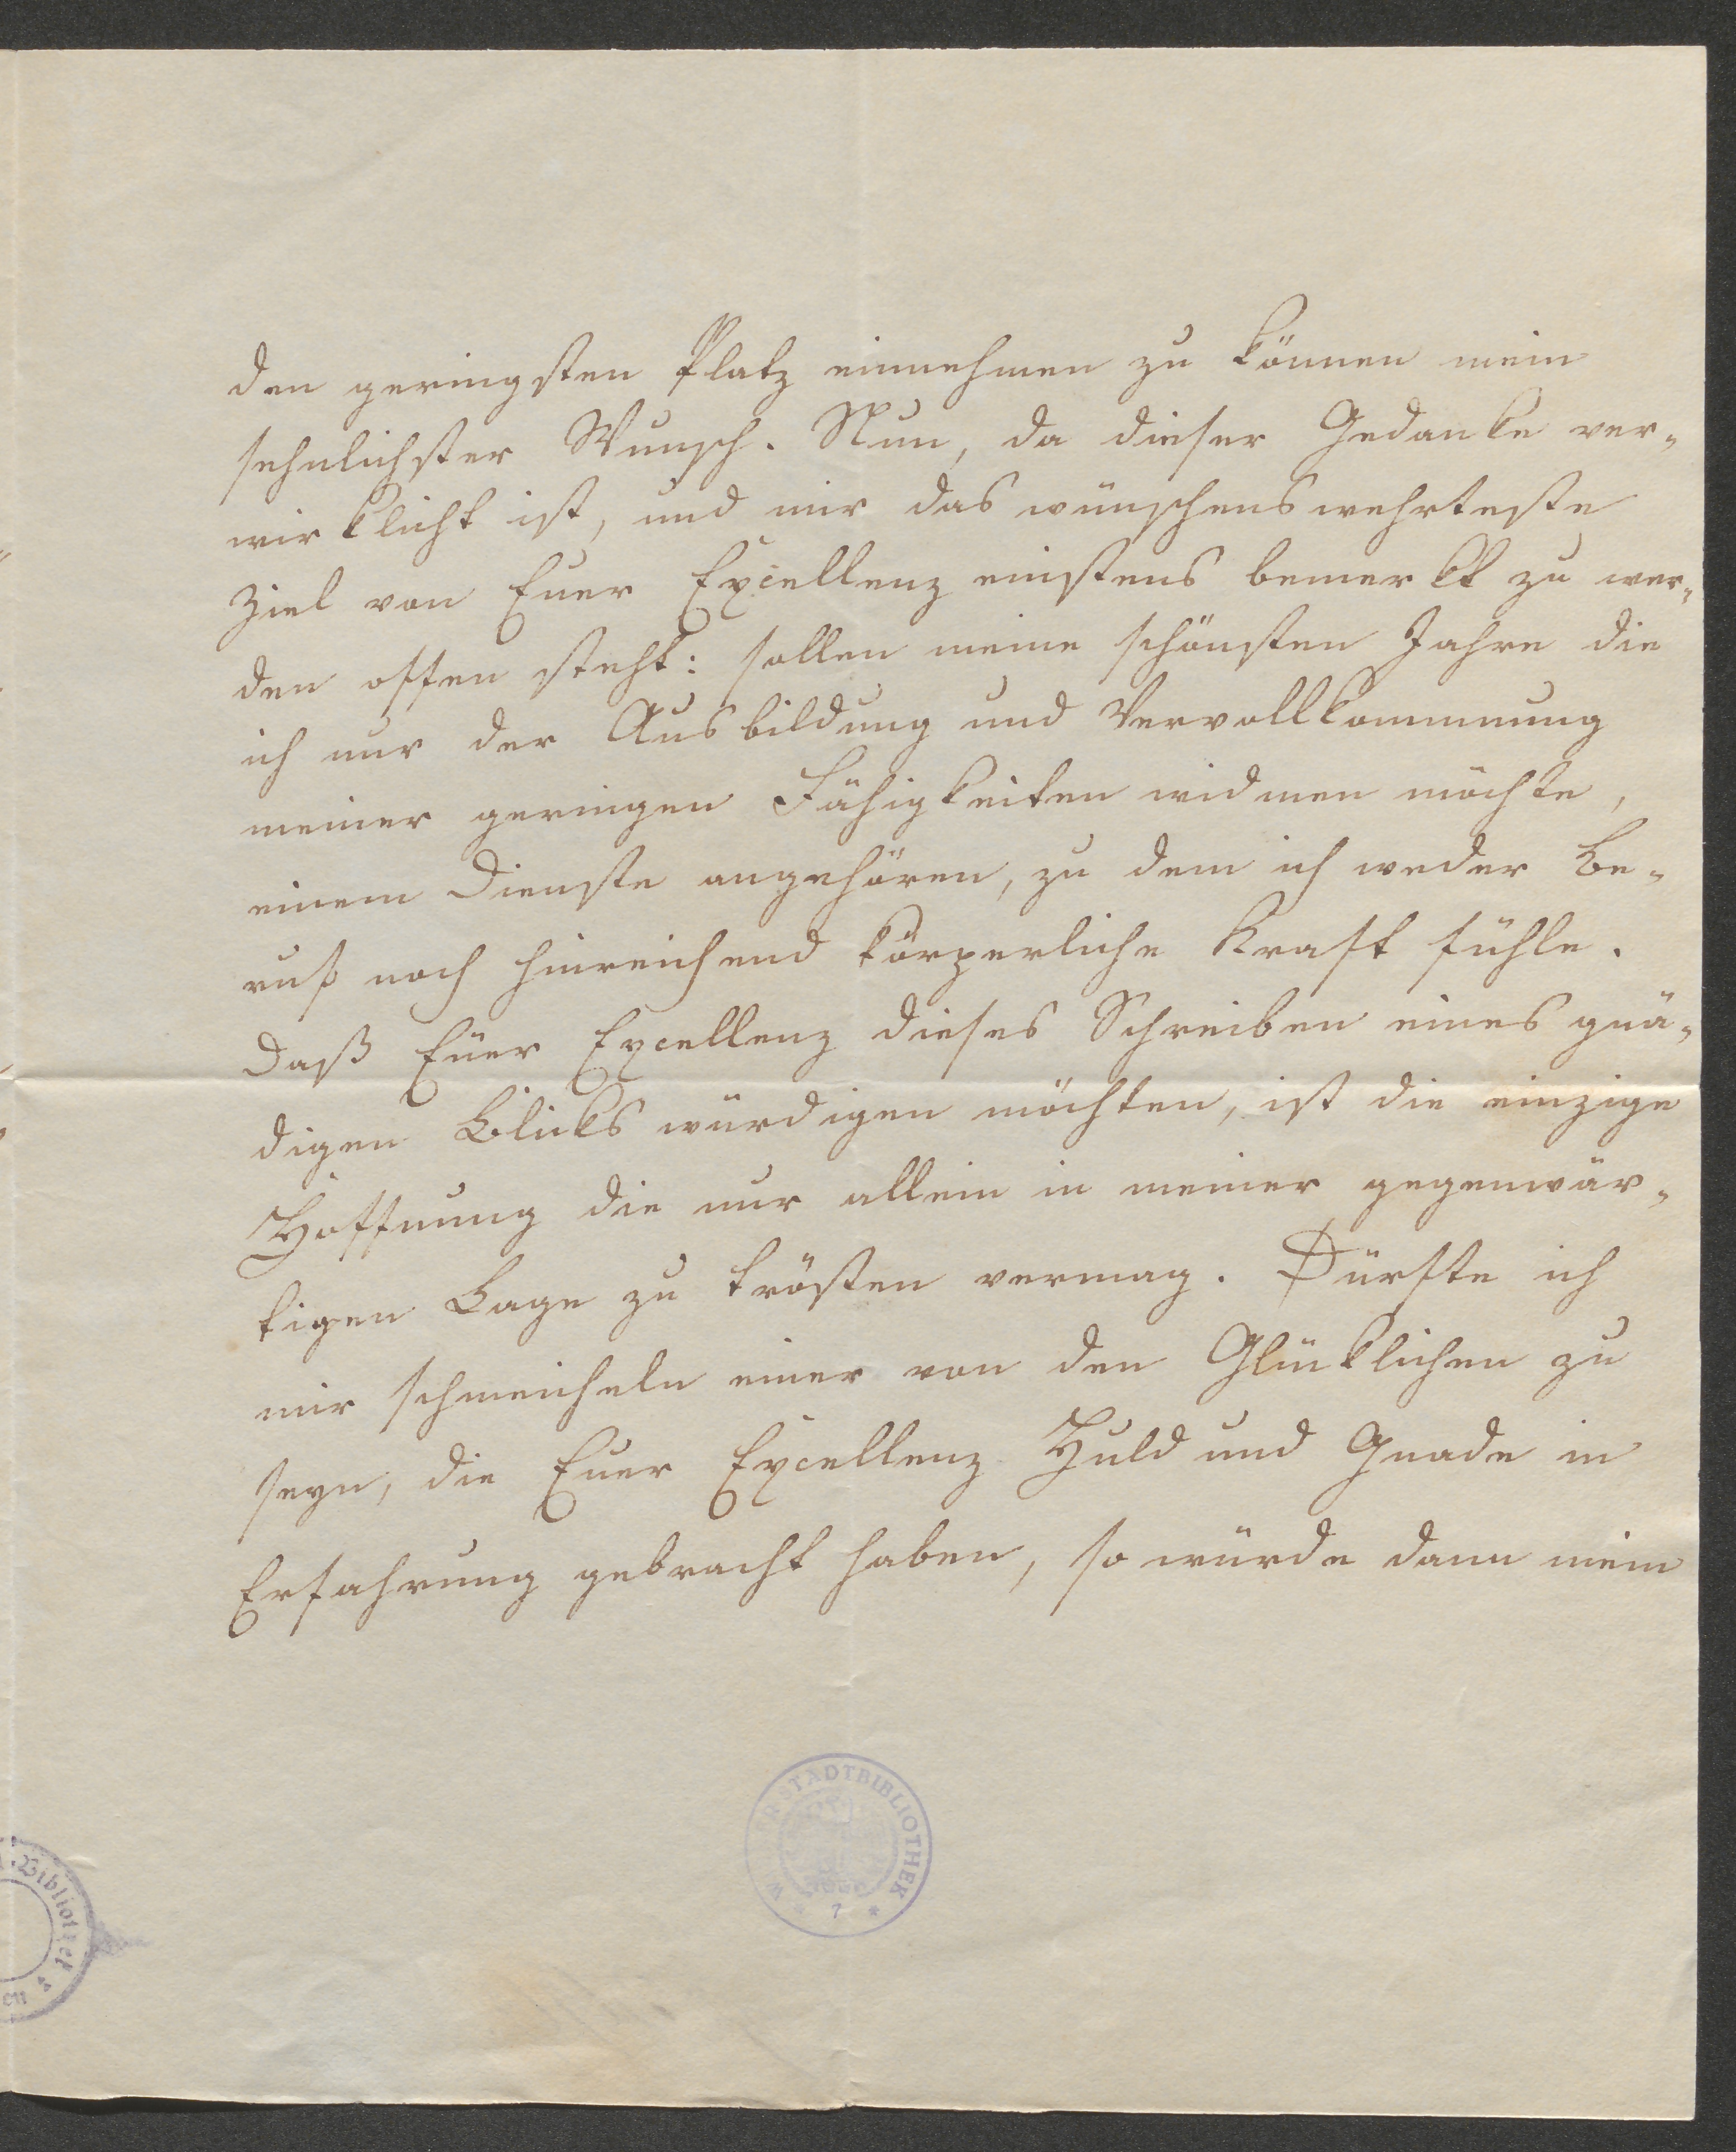 den geringsten Platz einnehmen zu können mein
sehnlichster Wunsch. Nun, da dieser Gedanke ver-
wirklicht ist, und mir das wünschenswehrteste
Ziel von Euer Excellenz einstens bemerkt zu wer-
den offen steht: sollen meine schönsten Jahre die
ich nur der Ausbildung und Vervollkommnung
meiner geringen Fähigkeiten widmen möchte,
einem Dienste angehören, zu dem ich weder Be-
ruf noch hinreichend körperliche Kraft fühle.
Daß Euer Excellenz dieses Schreiben eines gnä-
digen Blicks würdigen möchten, ist die einzige
Hoffnung die nur allein in meiner gegenwär-
tigen Lage zu trösten vermag. Dürfte ich
mir schmeicheln einer von den Glücklichen zu
seyn, die Euer Excellenz Huld und Gnade in
Erfahrung gebracht haben, so würde dann mein
STADTBIBLIOTHEK
* 7 *
Bibliothek